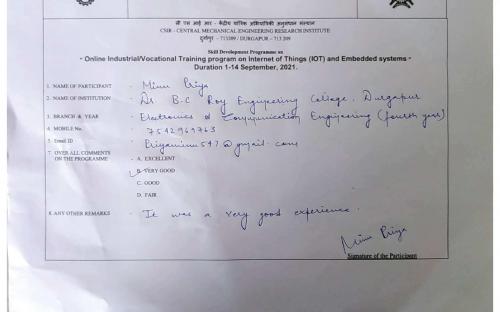 सी एस आई आर - केंद्रीय यांत्रिक अभियांत्रिकी अनुसंधान संस्थान
CSIR - CENTRAL MECHANICAL ENGINEERING RESEARCH INSTITUTE
दुर्गापुर - 713209 / DURGAPUR - 713 209
Skill Development Programme on
- Online Industrial/Vocational Training program on Internet of Things (IOT) and Embedded systems -
Duration 1-14 September, 2021.
1. NAME OF PARTICIPANT - Minu Priya
2. NAME OF INSTITUTION - Dr B.C Roy Engineering College, Durgapur
3. BRANCH & YEAR - Electronics & Communication Engineering (fourth year)
4. MOBILE No. - 7542969763
5. Email ID - Priyaminu547@gmail.com
7. OVER ALL COMMENTS - A. EXCELLENT
ON THE PROGRAMME
B. VERY GOOD
C. GOOD
D. FAIR
8. ANY OTHER REMARKS - It was a very good experience.
Minu Priya
Signature of the Participant